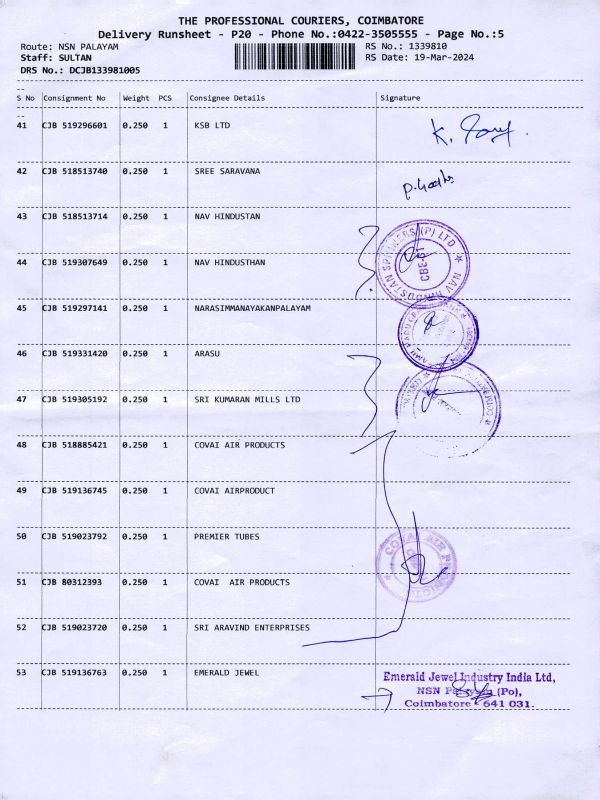 THE PROFESSIONAL COURIERS, COIMBATORE
Delivery Runsheet - P20 - Phone No.:0422-3505555 - Page No.:5
Route: NSN PALAYAM
RS No.: 1339810
Staff: SULTAN
RS Date: 19-Mar-2024
DRS No.: DCJB133981005
S No Consignment No Weight PCS Consignee Details Signature
41 CJB 519296601 0.250 1 KSB LTD
42 CJB 518513740 0.250 1 SREE SARAVANA
43 CJB 518513714 0.250 1 NAV HINDUSTAN
44 CJB 519307649 0.250 1 NAV HINDUSTHAN
NAV HINDUSTAN SPINNERS (P) LTD
CBE-
45 CJB 519297141 0.250 1 NARASIMMANAYAKANPALAYAM
46 CJB 519331420 0.250 1 ARASU
47 CJB 519305192 0.250 1 SRI KUMARAN MILLS LTD
48 CJB 518885421 0.250 1 COVAI AIR PRODUCTS
49 CJB 519136745 0.250 1 COVAI AIRPRODUCT
50 CJB 519023792 0.250 1 PREMIER TUBES
COVAI AIR
51 CJB 80312393 0.250 1 COVAI AIR PRODUCTS
52 CJB 519023720 0.250 1 SRI ARAVIND ENTERPRISES
53 CJB 519136763 0.250 1 EMERALD JEWEL
Emerald Jewel Industry India Ltd,
NSN (Po),
Coimbatore - 641 031.